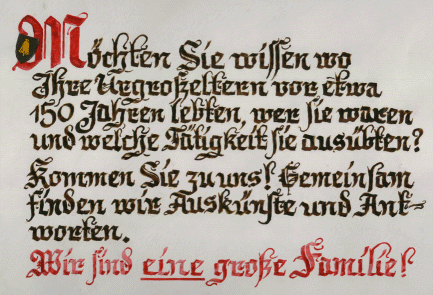 Möchten Sie wissen wo
Ihre Urgroßeltern vor etwa
150 Jahren lebten, wer sie waren
und welche Tätigkeit sie ausübten?
Kommen Sie zu uns! Gemeinsam
finden wir Auskünfte und Ant-
worten.
Wir sind eine große Familie!